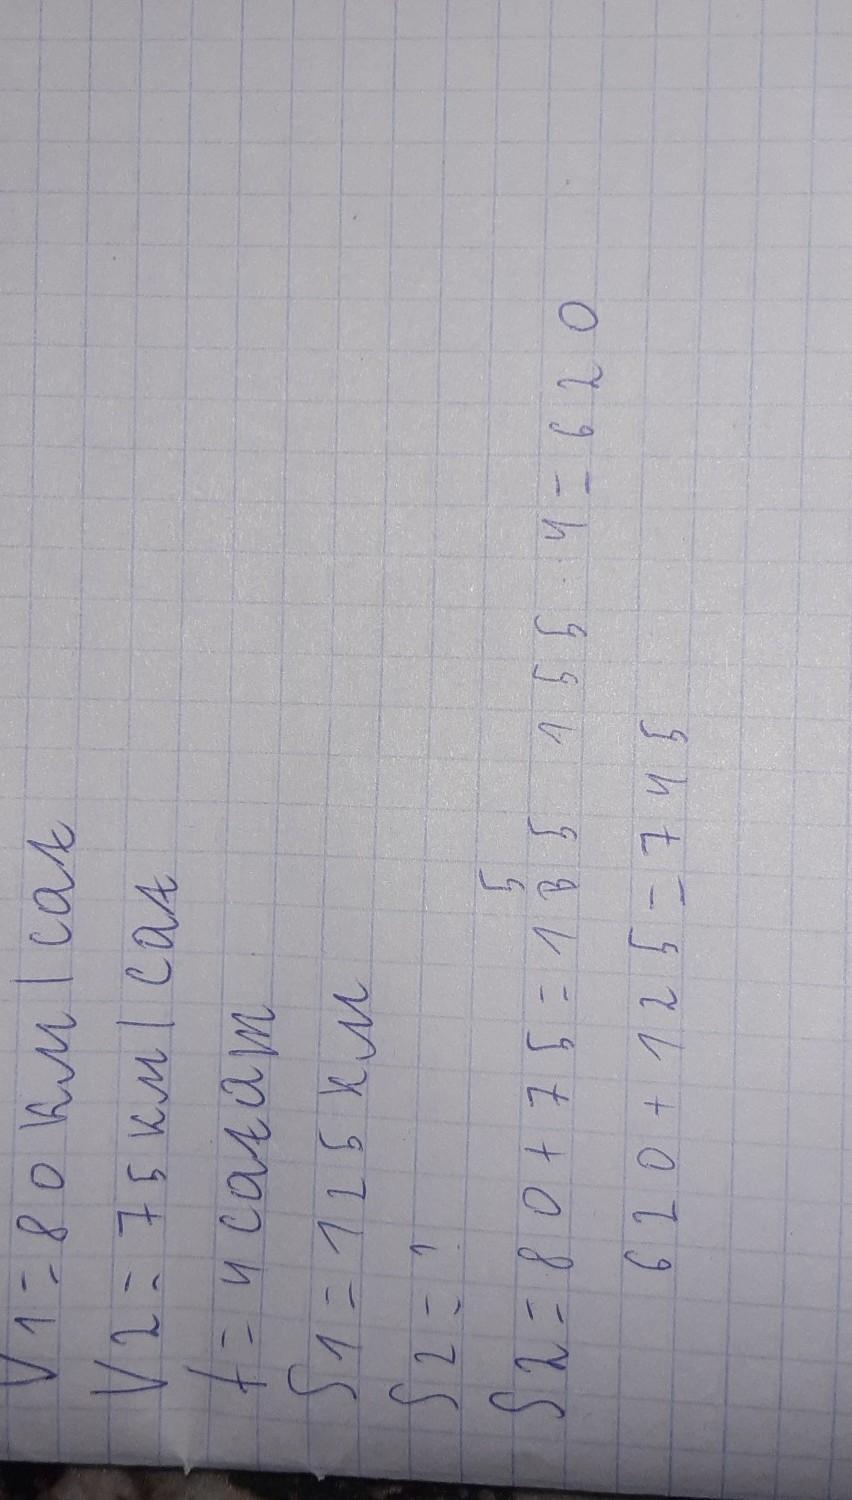 V1=80 км|сағ
V2=75 км|сағ
t=4 сағат
S1=125 км
S2=?
S2=80+75=155 155·4=620
620+125=745